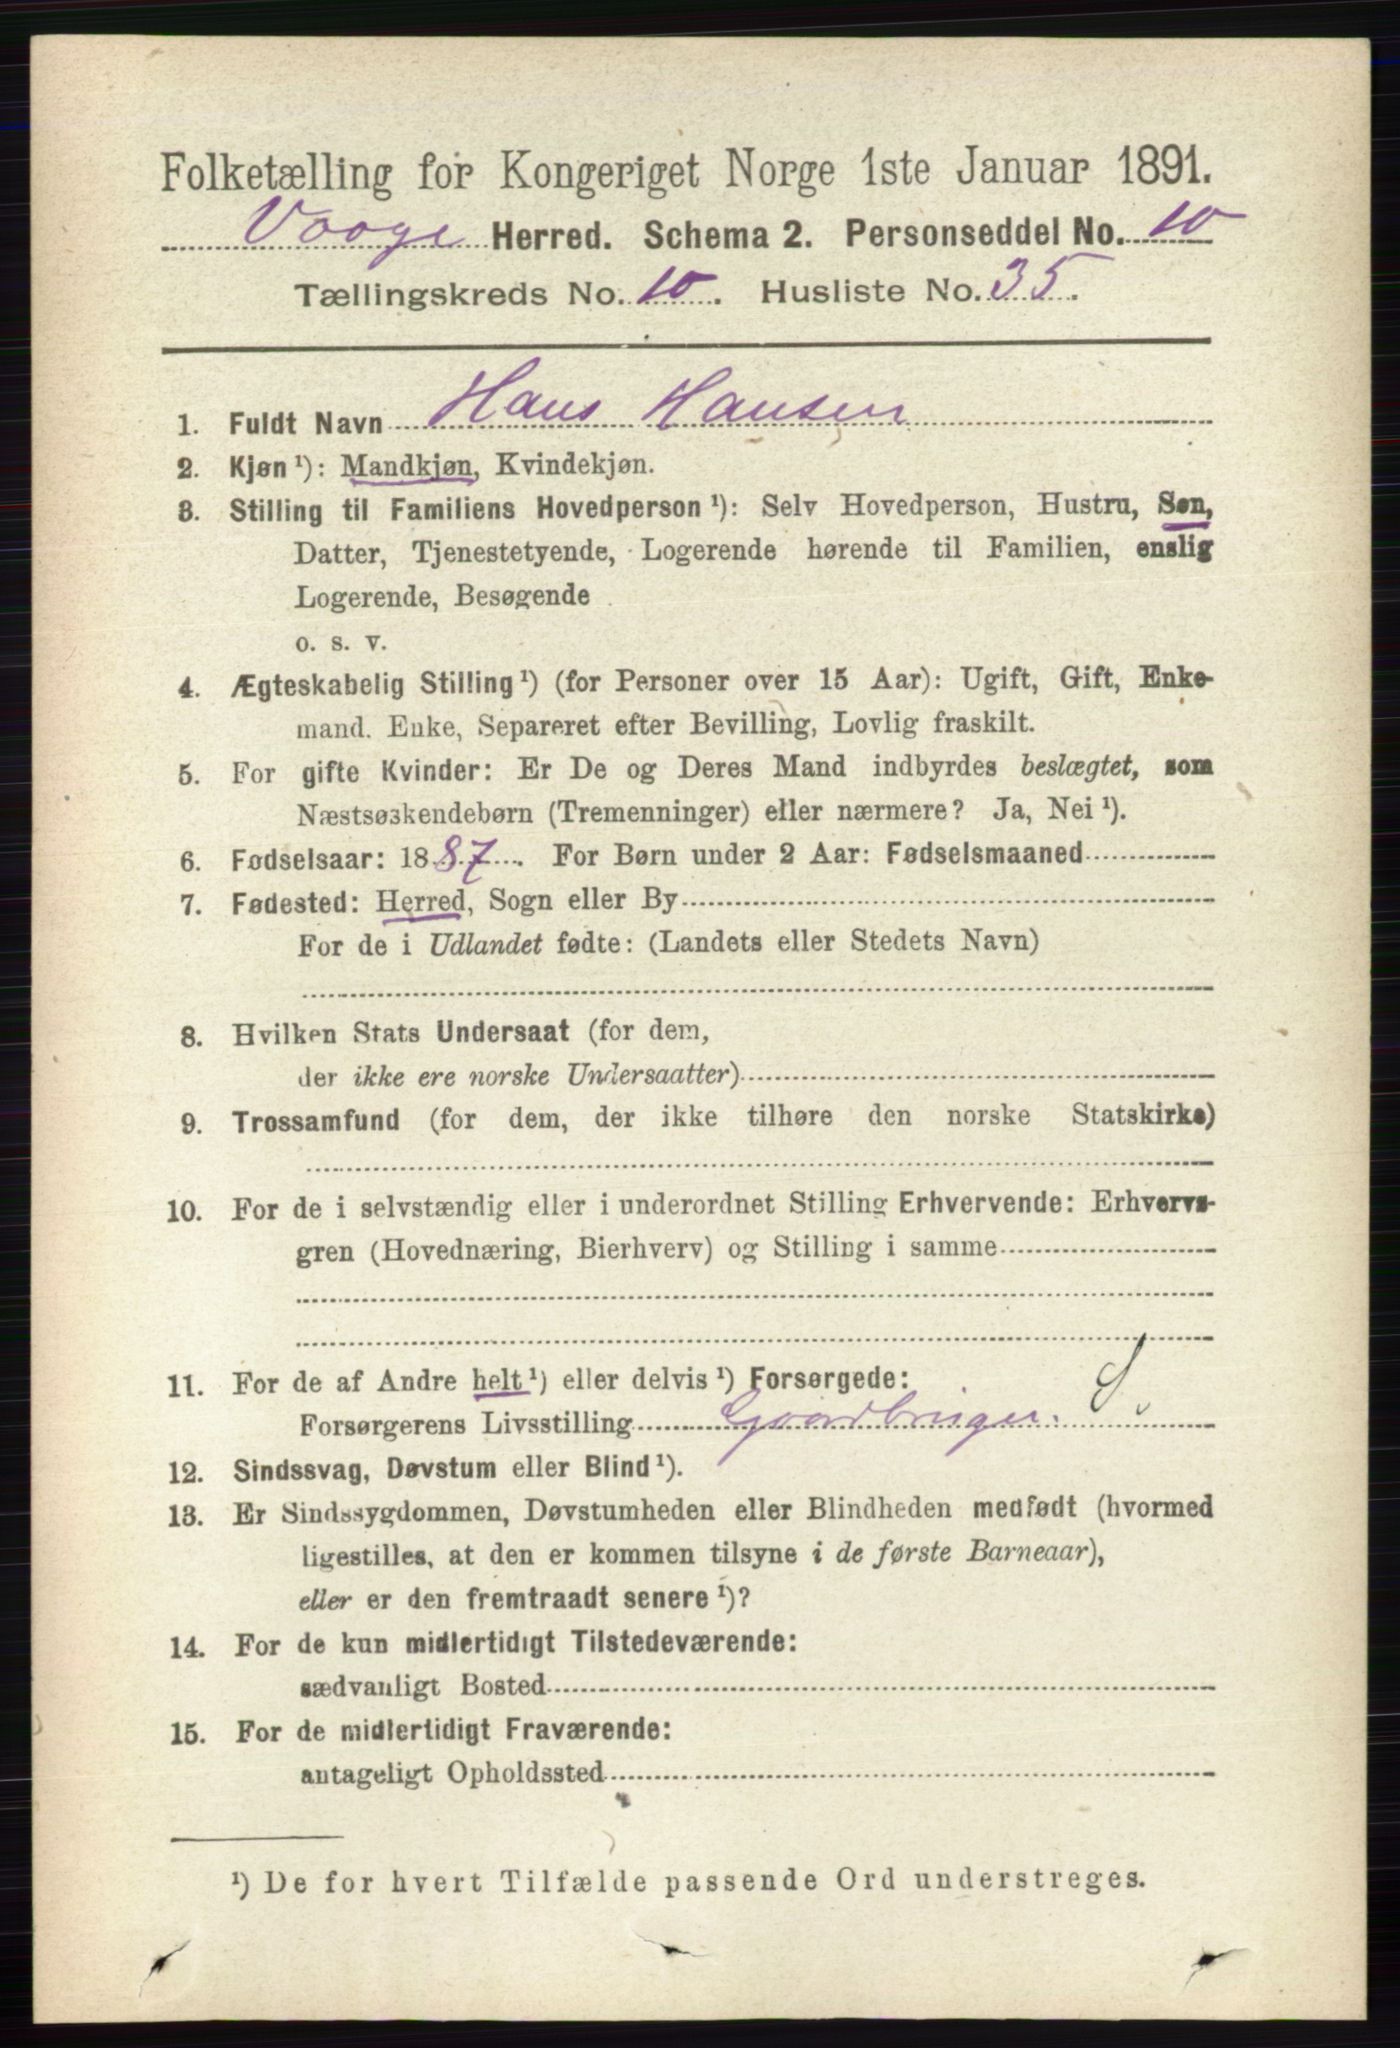 Folketælling for Kongeriget Norge 1ste Januar 1891.
Vaage Herred. Schema 2. Personseddel No. 10
Tællingskreds No. 10. Husliste No. 35.
1. Fuldt Navn Hans Hansen
2. Kjøn ¹): Mandkjøn, Kvindekjøn.
3. Stilling til Familiens Hovedperson ¹): Selv Hovedperson, Hustru, Søn,
Datter, Tjenestetyende, Logerende hørende til Familien, enslig
Logerende, Besøgende
o. s. v.
4. Ægteskabelig Stilling ¹) (for Personer over 15 Aar): Ugift, Gift, Enke-
mand. Enke, Separeret efter Bevilling, Lovlig fraskilt.
5. For gifte Kvinder: Er De og Deres Mand indbyrdes beslægtet, som
Næstsøskendebørn (Tremenninger) eller nærmere? Ja, Nei ¹).
6. Fødselsaar: 1887. For Børn under 2 Aar: Fødselsmaaned
7. Fødested: Herred, Sogn eller By
For de i Udlandet fødte: (Landets eller Stedets Navn)
8. Hvilken Stats Undersaat (for dem,
der ikke ere norske Undersaatter)
9. Trossamfund (for dem, der ikke tilhøre den norske Statskirke)
10. For de i selvstændig eller i underordnet Stilling Erhvervende: Erhvervs-
gren (Hovednæring, Bierhverv) og Stilling i samme
11. For de af Andre helt ¹) eller delvis ¹) Forsørgede: S.
Forsørgerens Livsstilling Gaardbruger.
12. Sindssvag, Døvstum eller Blind ¹).
13. Er Sindssygdommen, Døvstumheden eller Blindheden medfødt (hvormed
ligestilles, at den er kommen tilsyne i de første Barneaar),
eller er den fremtraadt senere ¹)?
14. For de kun midlertidigt Tilstedeværende:
sædvanligt Bosted
15. For de midlertidigt Fraværende:
antageligt Opholdssted
¹) De for hvert Tilfælde passende Ord understreges.